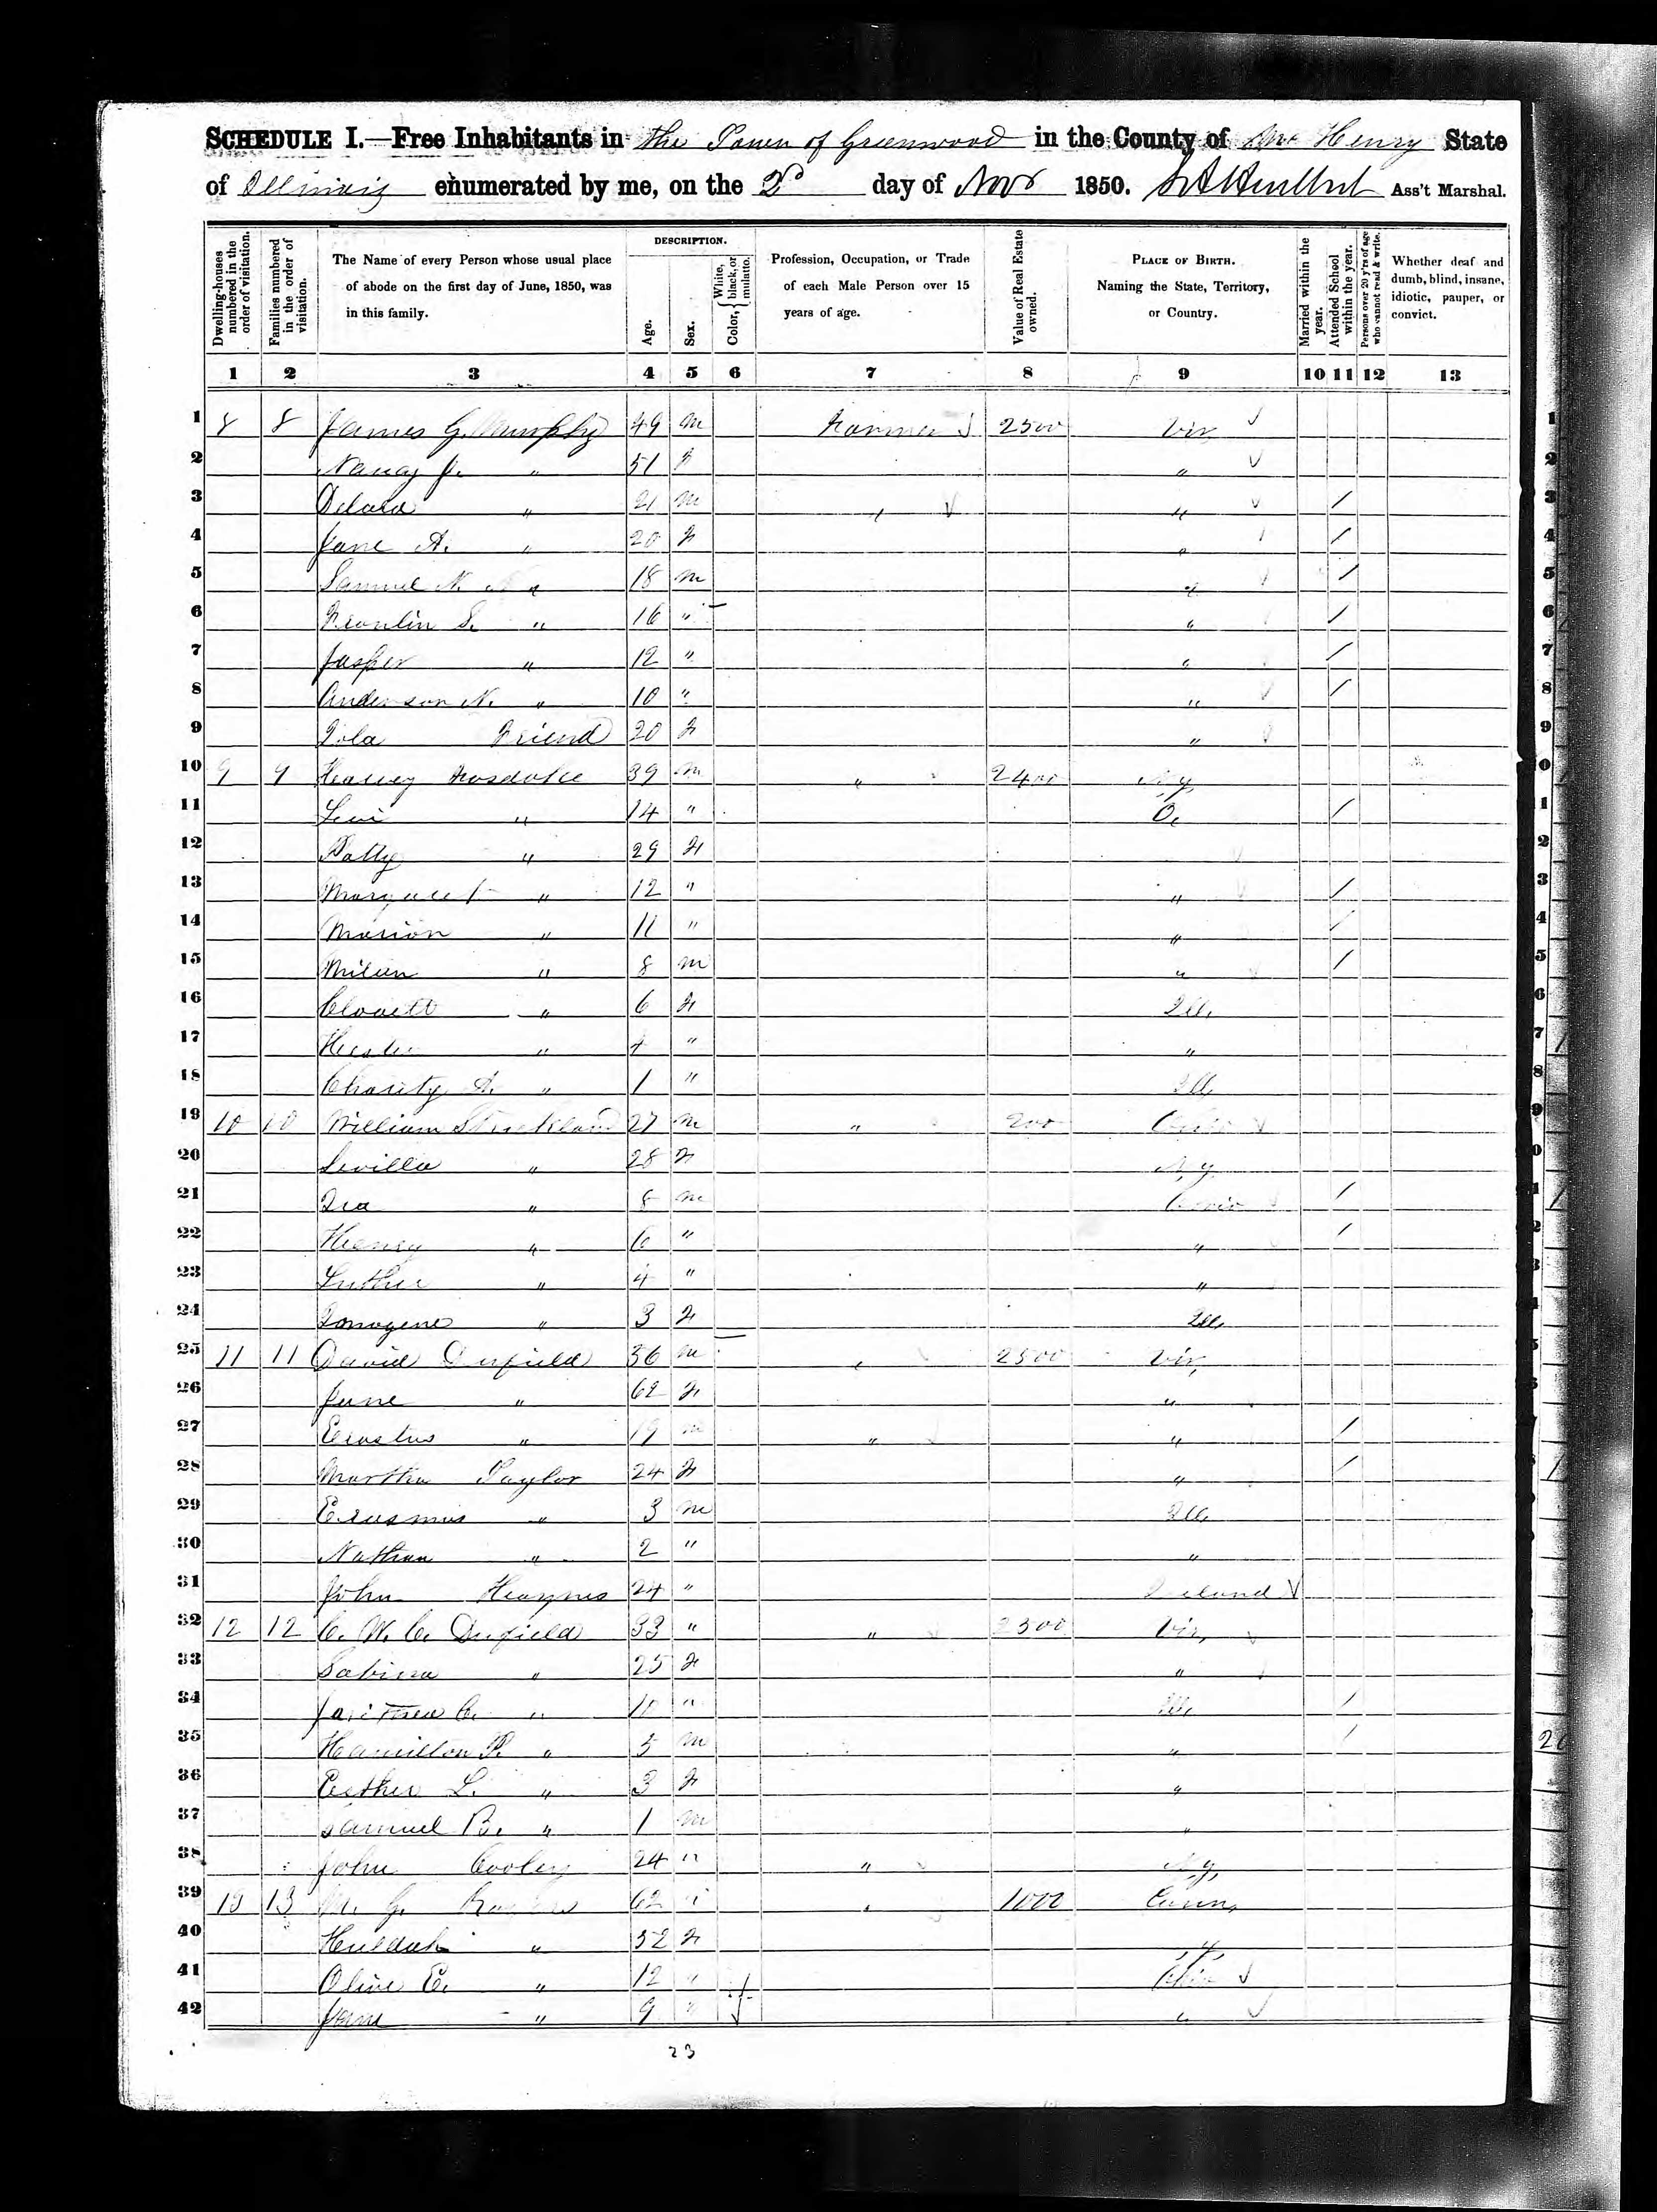 SCHEDULE I.—Free Inhabitants in the Town of Greenwood in the County of Mc Henry State
of Illinois enumerated by me, on the 2d day of Nov 1850. Ass't Marshal.
Dwelling-houses numbered in the order of visitation.
Families numbered in the order of visitation.
The Name of every Person whose usual place of abode on the first day of June, 1850, was in this family.
DESCRIPTION.
Age.
Sex.
Color, { White, black, or mulatto.
Profession, Occupation, or Trade of each Male Person over 15 years of age.
Value of Real Estate owned.
PLACE OF BIRTH. Naming the State, Territory, or Country.
Married within the year.
Attended School within the year.
Persons over 20 y'rs of age who cannot read & write.
Whether deaf and dumb, blind, insane, idiotic, pauper, or convict.
1 2 3 4 5 6 7 8 9 10 11 12 13
1 8 8 James G. Murphy 49 m Farmer 2500 Vir, 1
2 Nancy J. " 51 f " 2
3 " 21 m " " / 3
4 Jane A. " 20 f " / 4
5 Samuel N. " 18 m " / 5
6 S. " 16 " " / 6
7 Jasper " 12 " " / 7
8 Anderson N. " 10 " " / 8
9 Friend 20 f " 9
10 9 9 Harvey 39 m " 2400 N.Y. 0
11 Levi " 14 " O. / 1
12 " 29 f 2
13 Margaret " 12 " " / 3
14 Marion " 11 " " / 4
15 " 8 m " / 5
16 " 6 f Ill, 6
17 " 4 " " 7
18 Charity A. " 1 " Ill, 8
19 10 10 William Strickland 27 m " 200 Ohio 9
20 " 28 f N.Y. 0
21 Ira " 8 m Ohio /
22 Henry " 6 " " / 2
23 Luther " 4 " "
24 Imogene " 3 f Ill,
25 11 11 David Dufield 36 m " 2500 Vir,
26 Jane " 62 f "
27 Erastus " 19 m " " /
28 Martha Taylor 24 f " /
29 Erasmus " 3 m Ill,
30 Nathan " 2 " "
31 John Haynes 24 " Ireland
32 12 12 C. W. C. Dufield 33 " " 2500 Vir,
33 Sabina " 25 f "
34 C. " 10 " Ill, /
35 Hamilton P. " 5 m " /
36 Esther L. " 3 f "
37 Samuel B. " 1 m "
38 John Cooley 24 " " N.Y,
39 13 13 62 " " 1000 Conn,
40 Huldah " 52 f "
41 Olive E. " 12 " Ohio
42 Jane " 9 " "
23